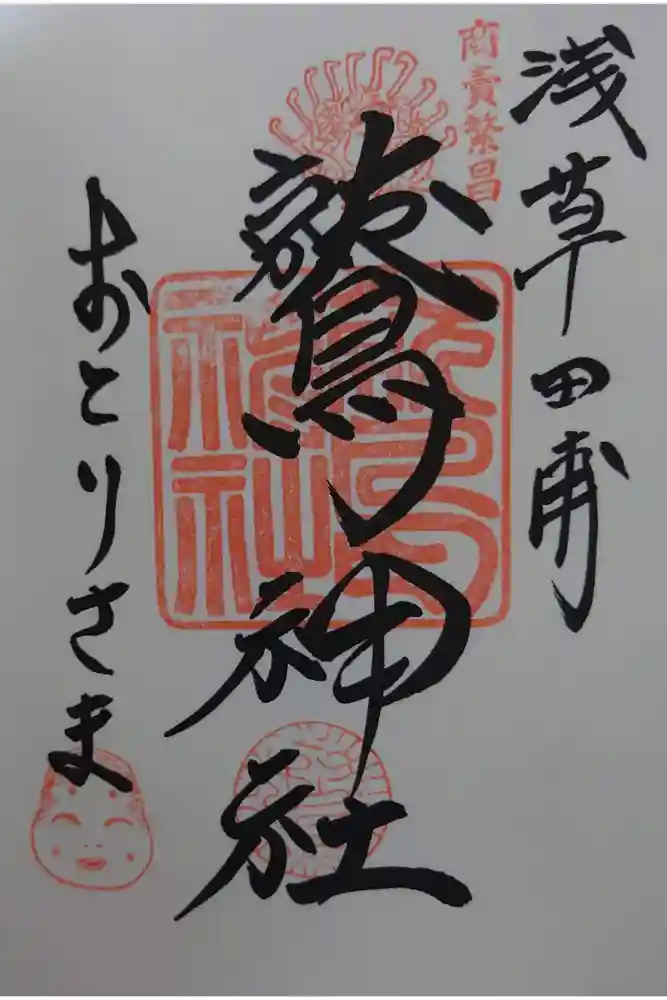 浅草田甫
商賣繁昌
鷲神社
鷲神社
おとりさま